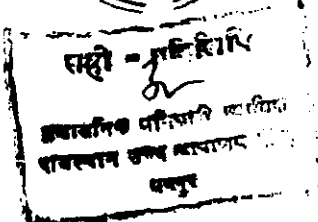 सही = प्रतिलिपि
प्रशासनिक अधिकारी न्यायिक
राजस्थान उच्च न्यायालय
जयपुर